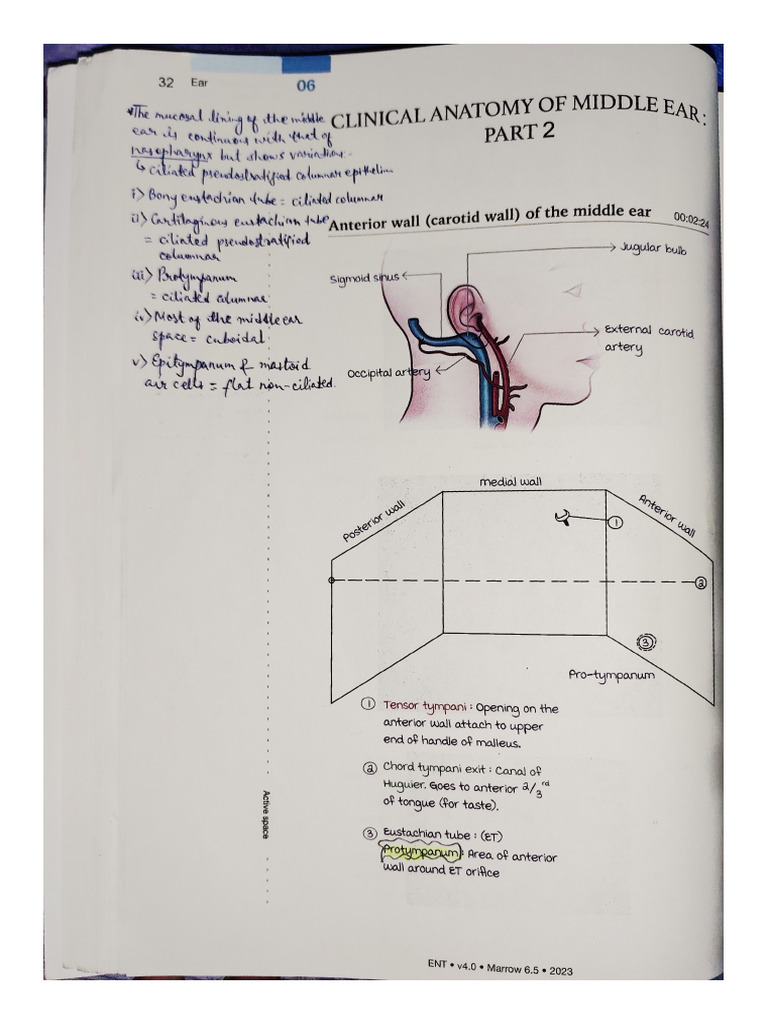 32 Ear 06
*The mucosal lining of the middle
ear is continuous with that of
nasopharynx but shows variation.
↳ ciliated pseudostratified columnar epithelium
i) Bony eustachian tube = ciliated columnar
ii) Cartilaginous eustachian tube
= ciliated pseudostratified
columnar
iii) Protympanum
= ciliated columnar
iv) Most of the middle ear
space = cuboidal
v) Epitympanum & mastoid
air cells = flat non-ciliated.
CLINICAL ANATOMY OF MIDDLE EAR:
PART 2
Anterior wall (carotid wall) of the middle ear 00:02:24
Jugular bulb
Sigmoid sinus
External carotid
artery
Occipital artery
medial wall
Posterior wall
Anterior wall
1
2
3
Pro-tympanum
1 Tensor tympani : Opening on the
anterior wall attach to upper
end of handle of malleus.
2 Chord tympani exit : Canal of
Huguier. Goes to anterior 2/3rd
of tongue (for taste).
3 Eustachian tube : (ET)
Protympanum: Area of anterior
wall around ET orifice
Active space
ENT • v4.0 • Marrow 6.5 • 2023